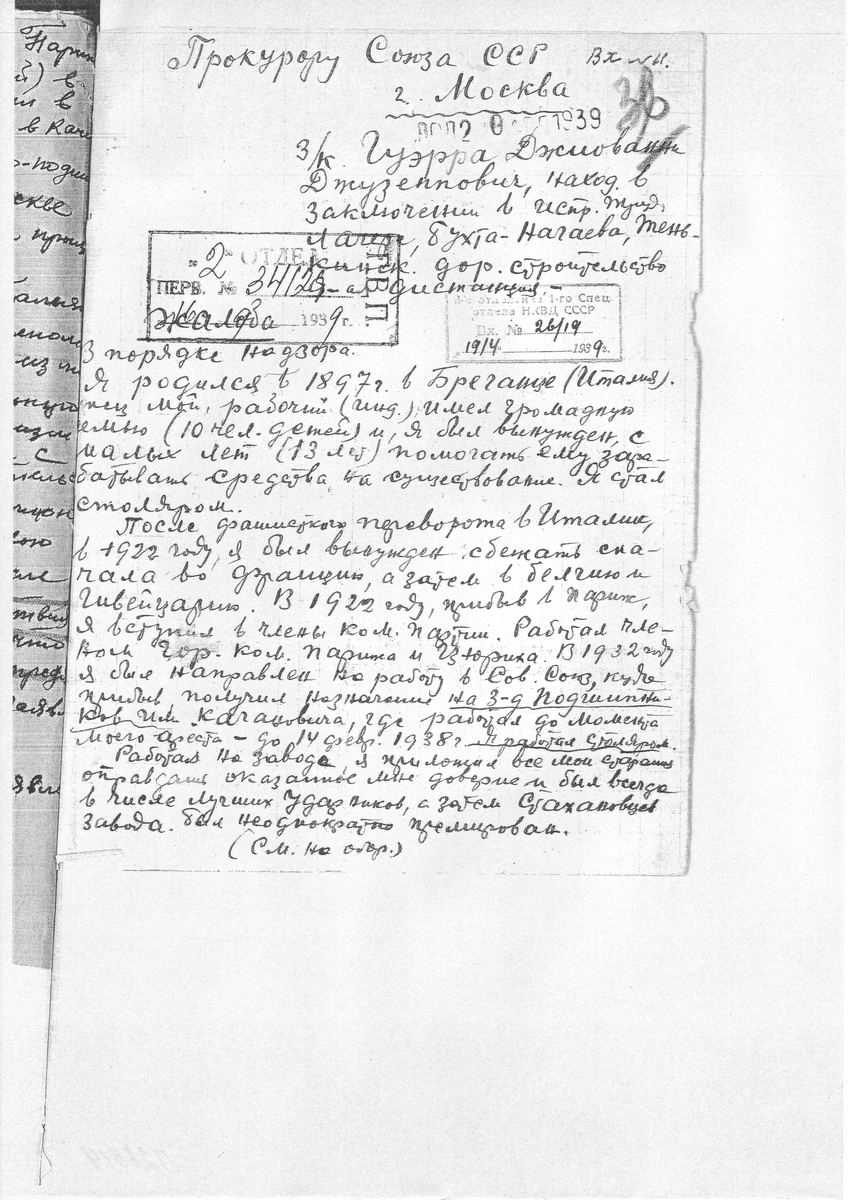 Прокурору Союза ССР Вх №11.
г. Москва
1939
з/к. Гуэрра Джиованни
Джузеппович, наход. в
заключении в испр. труд.
лагере, Бухта-Нагаева, Тень-
кинск. дор. строительство
дистанция -
"2" ОТДЕЛ ГВП
ПЕРВ. № 34125
1939 г.
отдела НКВД СССР
Вх. № 26/19
19/4 1939 г.
Жалоба
в порядке надзора.
Я родился в 1897 г. в Бреганце (Италия).
Отец мой, рабочий (инд.), имел громадную
семью (10 чел. детей) и, я был вынужден, с
малых лет (13 лет) помогать ему зара-
батывать средства на существование. Я стал
столяром.
После фашисткого переворота в Италии,
в 1922 году, я был вынужден сбежать сна-
чала во Францию, а затем в Белгию и
Швейцарию. В 1922 году, прибыв в Париж,
я вступил в члены ком. партии. Работал чле-
ном Гор. ком. Парижа и Цюриха. В 1932 году
я был направлен на работу в Сов. Союз, куда
прибыв получил назначение на з-д Подшипни-
ков им Кагановича, где работал до момента
моего ареста - до 14 февр. 1938 г. Я работал столяром.
Работая на заводе, я приложил все мои старания
оправдать оказанное мне доверие и был всегда
в числе лучших Ударников, а затем Стахановцев
завода. Был неоднократно премирован.
(См. на обор.)